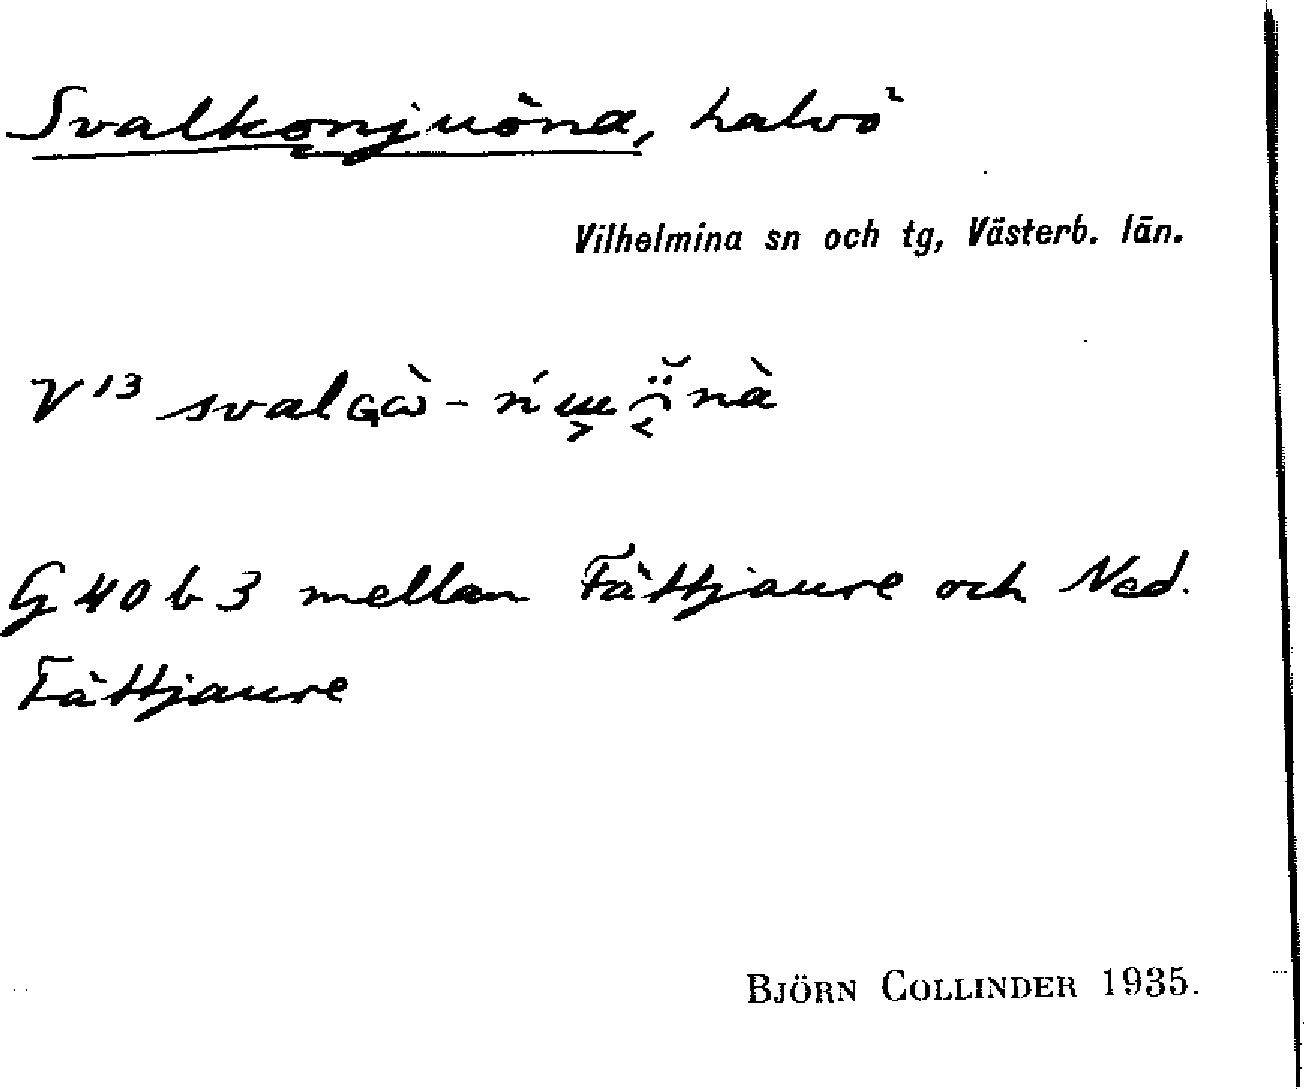 Svalkonjuöna, halvö
Vilhelmina sn och tg, Västerb. län.
V 13 svalɢὼ - ńɯ̭n̯̈̆nà
G 40 b 3 mellan Fättjaure och Ned.
Fättjaure
BJÖRN COLLINDER 1935.